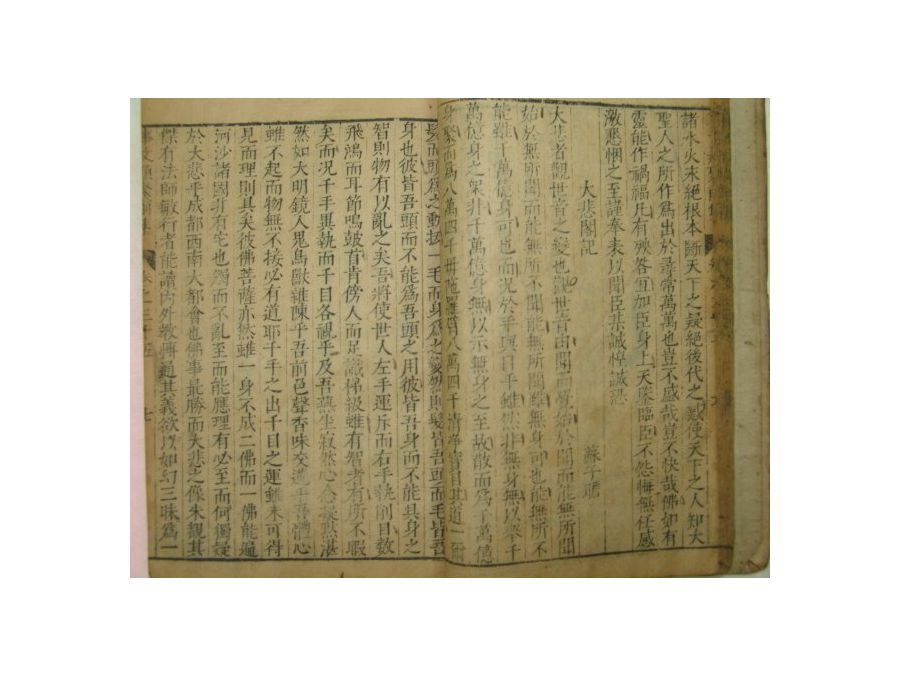 諸水火未絕根本斷天下之疑絕後代之惑使天下之人知大
聖人之所作爲出於尋常萬萬也豈不盛哉豈不快哉佛如有
靈能作禍福凡有殃咎宜加臣身上天鑒臨臣不怨悔無任感
激懇悃之至謹奉表以聞臣某誠惶誠恐
大悲閣記
蘇子瞻
大悲者觀世音之變也觀世音由聞而覺始於聞而能無所聞
始於無所聞而能無所不聞能無所聞雖無身可也能無所不
能雖千萬億身可也而況於手與目乎雖然非無身無以舉千
萬億身之眾非千萬億身無以示無身之至故散而爲千萬億
身聚而爲八萬四千母陀羅臂八萬四千清淨寶目其道一爾
髮而頭爲之動拔一毛而身爲之變然則髮皆吾頭而毛皆吾
身也彼皆吾頭而不能爲吾頭之用彼皆吾身而不能具身之
智則物有以亂之矣吾將使世人左手運斥而右手執削目數
飛鴻而耳節鳴鼓首肯傍人而足識梯級雖有智者有所不暇
矣而況千手異執而千目各視乎及吾燕坐寂然心念凝默湛
然如大明鏡人鬼鳥獸雜陳乎吾前色聲香味交遘乎吾體心
雖不起而物無不接必有道耶千手之出千目之運雖未可得
見而理則具矣彼佛菩薩亦然雖一身不成二佛而一佛能遍
河沙諸國非有它也觸而不亂至而能應理有必至而何獨疑
於大悲乎成都西南大都會也佛事最勝而大悲之像未覩其
傑有法師敏行者能讀內外教博通其義欲以如幻三昧爲一
卷之三十五
七